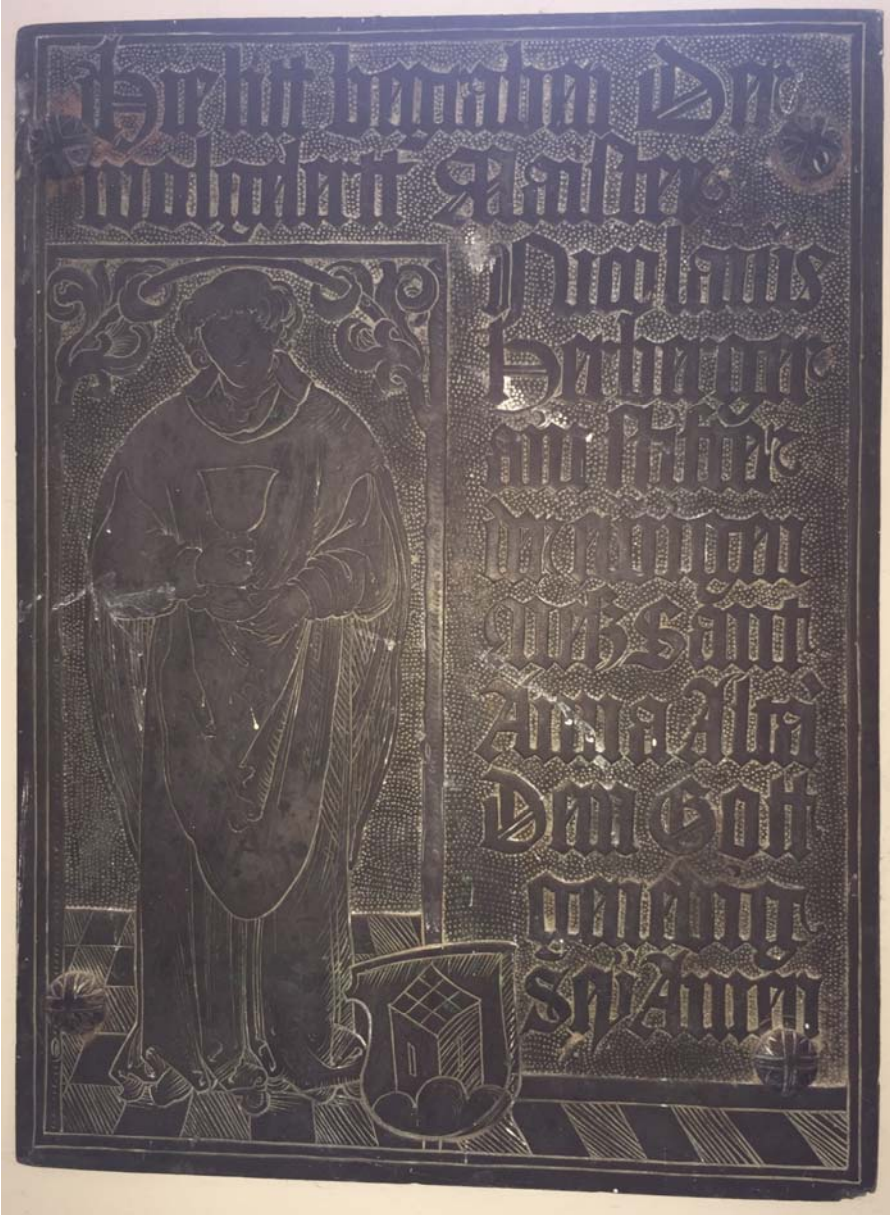 Hie litt begraben Der
wolgelertt Maister
Nicolaüs
Herberger
ain stiffter
der ewigen
Meß Sant
Anna Alta'
Dem Gott
genedig
Seÿ Amen